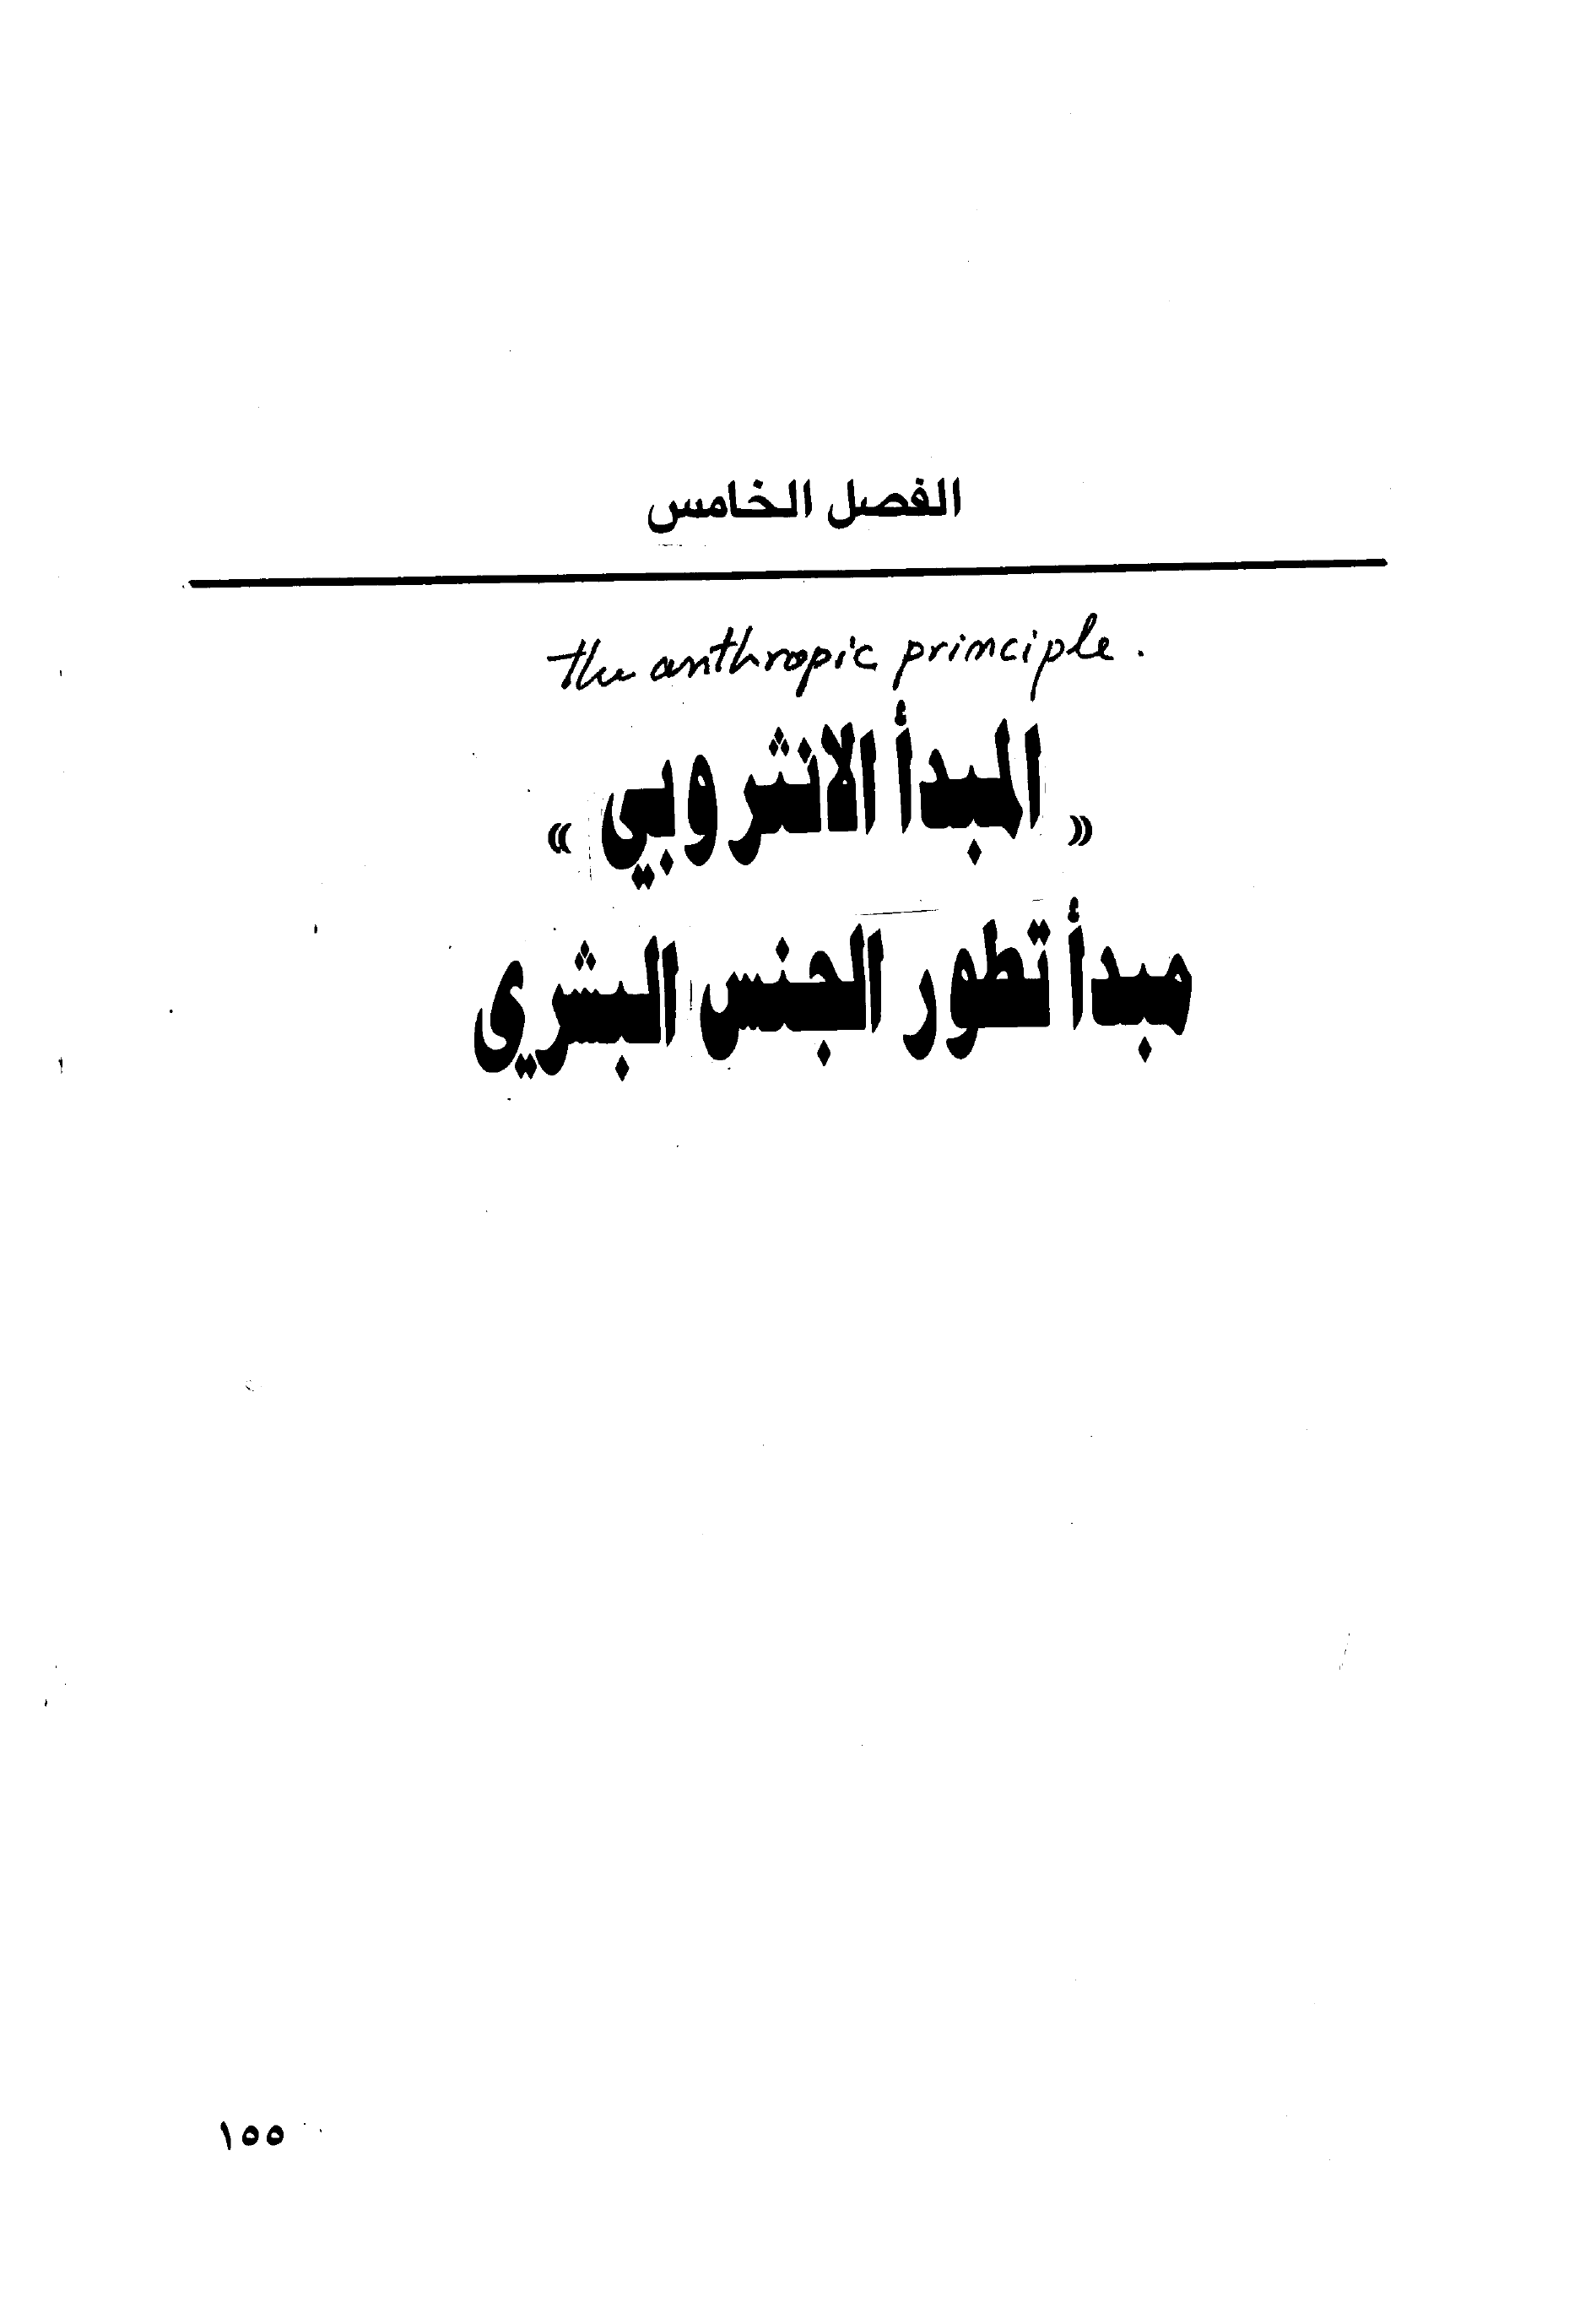 الفصل الخامس
the anthropic principle.
« المبدأ الانثروبي »
مبدأ تطور الجنس البشري
١٥٥